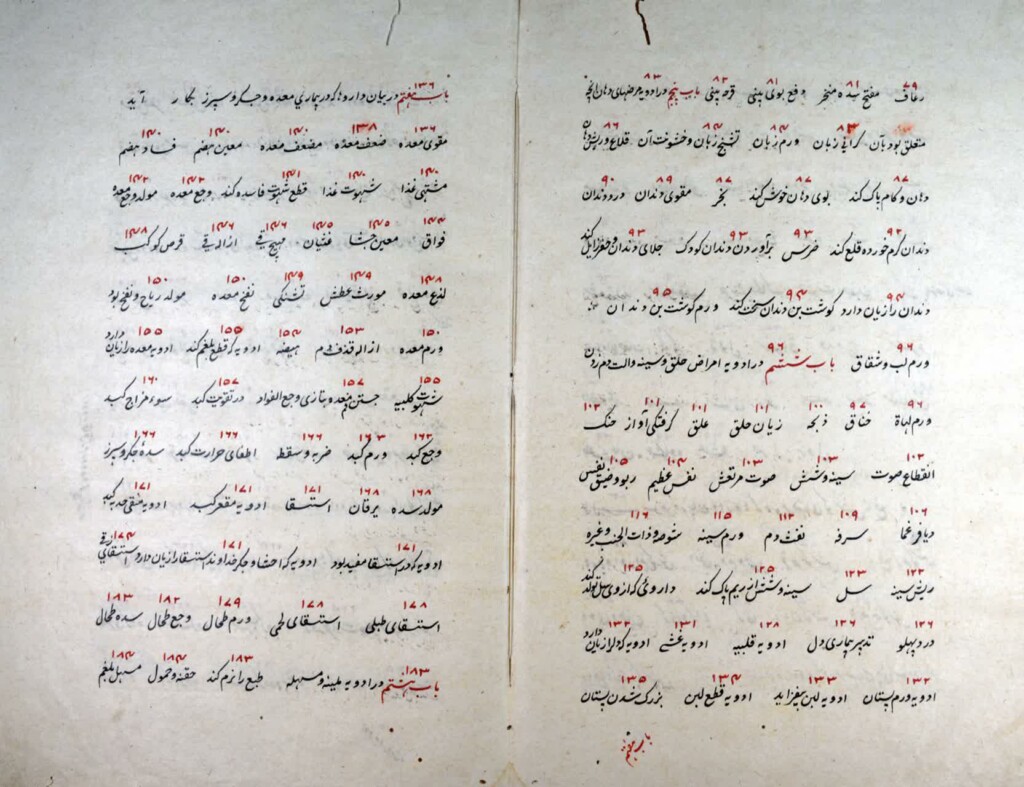 ۷۹ ۸۱ ۸۱ ۸۲ ۸۳
رعاف مفتح سده منخر دفع بوی بینی قرحه بینی باب پنجم در ادویه مرضهای دهان وآنچه
۸۳ ۸۴ ۸۴ ۸۶
متعلق بود بآن گرانی زبان ورم زبان تشنج زبان و خشونت آن قلاع و ریش دهان
۸۷ ۸۷ ۸۹ ۹۰
دهان و کام پاک کند بوی دهان خوش کند بخر مقوی دندان درد دندان
۹۲ ۹۳ ۹۳ ۹۳
دندان کرم خورده قلع کند ضرس برآوردن دندان کودک جلای دندان و حفر زایل کند
۹۴ ۹۴ ۹۵
دندان را زیان دارد کوشت بن دندان سخت کند ورم کوشت بن دندان
۹۶ ۹۶
ورم لب و شقاق باب ششم در ادویه امراض حلق و سینه و آلت دم زدن
۹۶ ۹۷ ۱۰۰ ۱۰۱ ۱۰۱ ۱۰۱ ۱۰۲
ورم لهاة خناق ذبحه زیان حلق علق کرفتگی آواز خنک
۱۰۲ ۱۰۳ ۱۰۳ ۱۰۴ ۱۰۵
انقطاع صوت سینه و شش صوت مرتعش نفس عظیم ربو و ضیق نفس
۱۰۶ ۱۰۹ ۱۱۲ ۱۱۵ ۱۱۶
سرفه نفث دم ورم سینه شوصه و ذات الجنب و غیره
۱۲۲ ۱۲۳ ۱۲۵ ۱۲۵
ریش سینه سل سینه و شش از ریم پاک کند داروئی که از وی سل تولد کند
۱۲۶ ۱۲۶ ۱۲۸ ۱۳۱ ۱۳۲
درد پهلو تدبیر بیماری دل ادویه قلبیه ادویه غشی ادویه که دل را زیان دارد
۱۳۲ ۱۳۳ ۱۳۴ ۱۳۵
ادویه ورم پستان ادویه لبن بیفزاید ادویه قطع لبن بزرک شدن پستان
باب هفتم
۱۳۶
باب هفتم در بیان داروها که در بیماری معده و جگر و سپرز بکار آید
۱۳۶ ۱۳۸ ۱۴۰ ۱۴۰ ۱۴۰
مقوی معده ضعف معده مضعف معده معین هضم فساد هضم
۱۴۰ ۱۴۰ ۱۴۱ ۱۴۲ ۱۴۲
مشتهی غذا شهوت غذا قطع شهوت فاسده کند وجع معده مولد وجع معده
۱۴۴ ۱۴۵ ۱۴۵ ۱۴۶ ۱۴۶ ۱۴۸
فواق معین جشا غثیان مهیج قی ازاله قی قرص کوکب
۱۴۸ ۱۴۹ ۱۴۹ ۱۵۰ ۱۵۰
لذع معده مورث عطش تشنگی نفخ معده مولد ریاح و نفخ بود
۱۵۰ ۱۵۳ ۱۵۴ ۱۵۵ ۱۵۵
ورم معده ازاله قذف دم هیضه ادویه که قطع بلغم کند ادویه معده را زیان دارد
۱۵۵ ۱۵۷ ۱۵۷ ۱۶۰
شهوت کلبیه جستن معده و بتازی وجع الفواد در تقویت کبد سوء مزاج کبد
۱۶۲ ۱۶۳ ۱۶۶ ۱۶۶ ۱۶۶
وجع کبد ورم کبد ضربه و سقطه اطفای حرارت کبد سده جگر و سپرز
۱۶۸ ۱۶۸ ۱۷۱ ۱۷۱ ۱۷۱
مولد سده یرقان استسقا ادویه مقعر کبد ادویه منقی حدبه کبد
۱۷۱ ۱۷۱ ۱۷۴
ادویه که در استسقا مفید بود ادویه که احشا و جگر خداوند استسقا را زیان دارد استسقای زقی
۱۷۸ ۱۷۸ ۱۷۹ ۱۸۲ ۱۸۳
استسقای طبلی استسقای لحمی ورم طحال وجع طحال سده طحال
۱۸۳ ۱۸۳ ۱۸۴ ۱۸۴
باب هشتم در ادویه ملینه و مسهله طبع را نرم کند حقنه و حمول مسهل بلغم